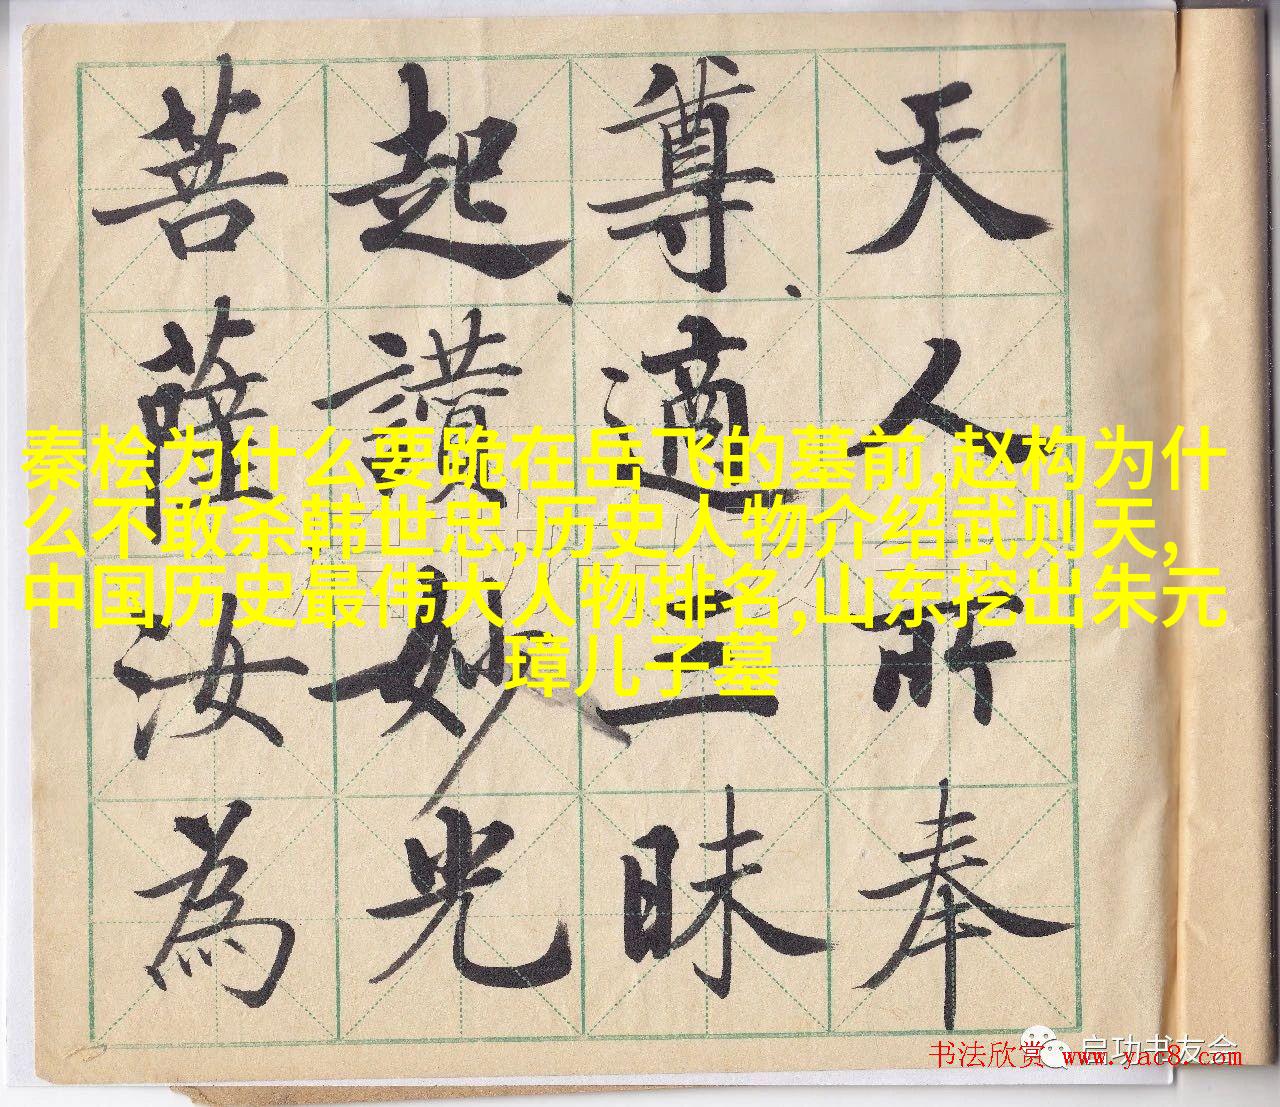 天人所奉
尊適三昧
起讚妙光
菩薩汝為
秦桧为什么要跪在岳飞的墓前,赵构为什
么不敢杀韩世忠,历史人物介绍武则天,
中国历史最伟大人物排名,山东挖出朱元
璋儿子墓
启功书友会
书法欣赏 www.yac8.com